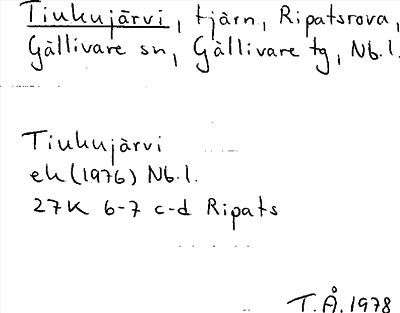 Tiukujärvi, tjärn, Ripatsrova,
Gällivare sn, Gällivare tg, Nb.l.
Tiukujärvi
ek (1976) Nb.l.
27K 6-7 c-d Ripats
T.Å. 1978